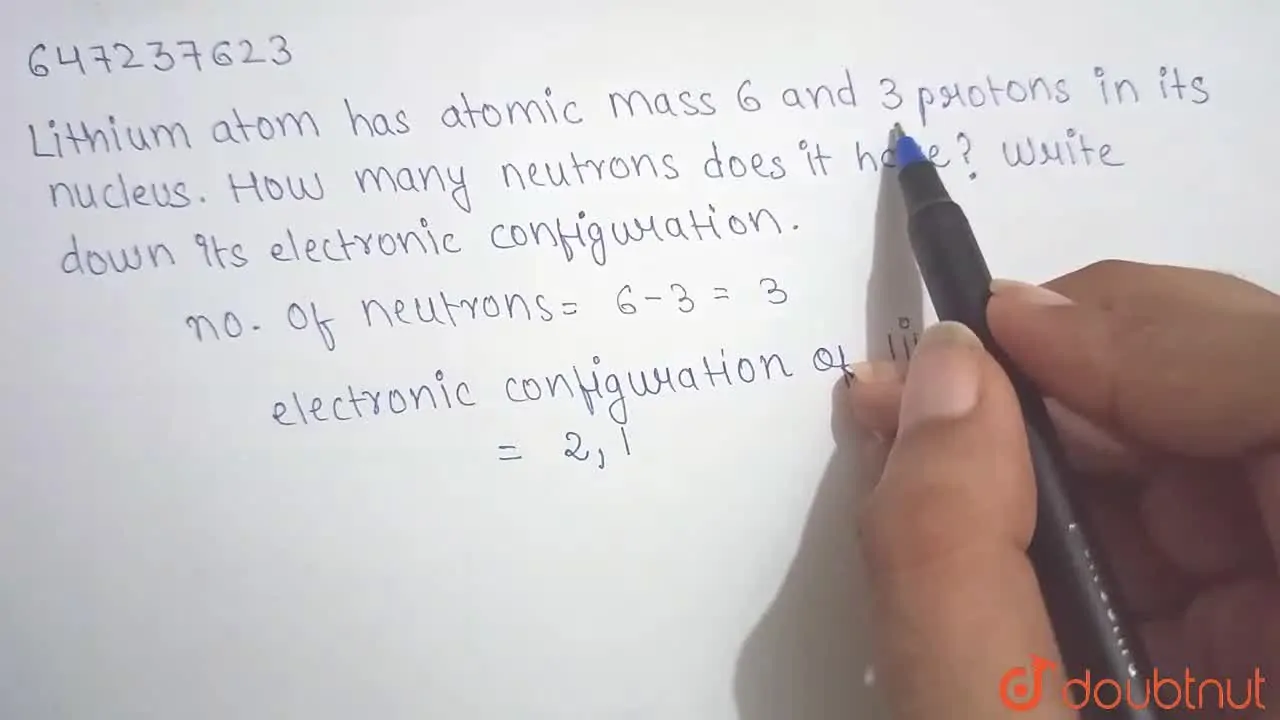 647237623
Lithium atom has atomic mass 6 and 3 protons in its
nucleus. How many neutrons does it have? Write
down its electronic configuration.
no. of neutrons = 6-3 = 3
electronic configuration of
= 2, 1
doubtnut